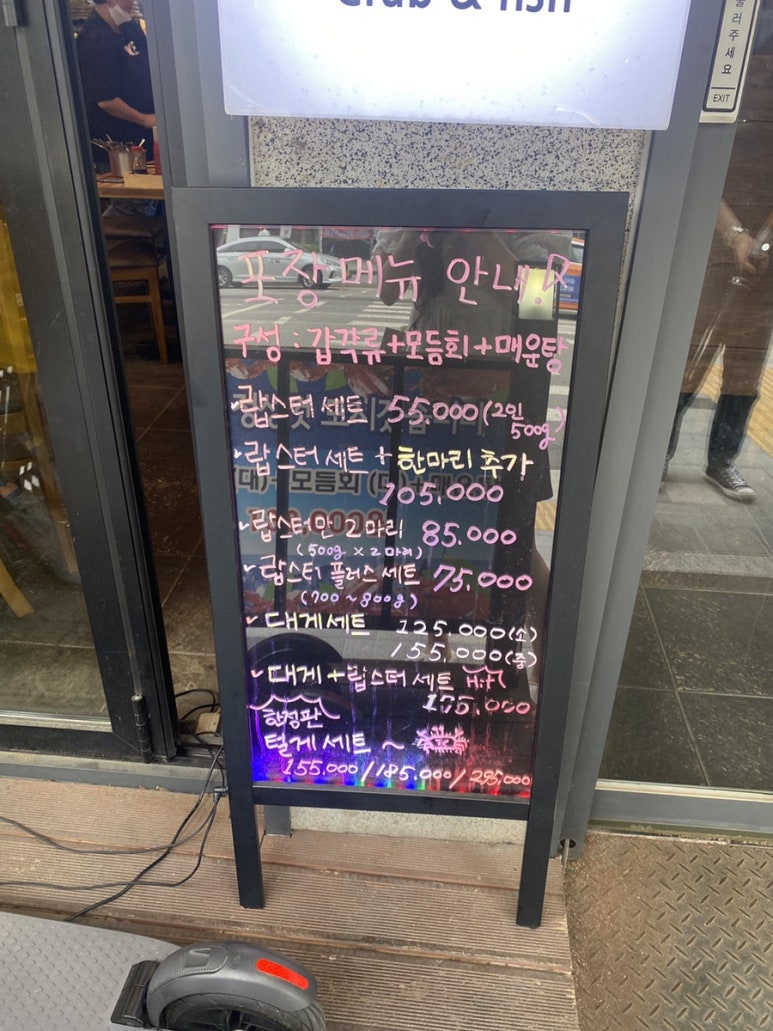 Crab & fish
눌러주세요
EXIT
포장 메뉴 안내!
구성 : 갑각류+모듬회+매운탕
랍스터 세트 55.000 (2인 500g)
랍스터 세트 + 한마리 추가
105,000
랍스터만 2마리 85.000
(500g x 2마리)
랍스터 플러스 세트 75,000
(700~800g)
대게세트 125.000(소)
155.000(중)
대게+랍스터 세트 Hit
한정판
털게 세트 ~
155,000/185.000/